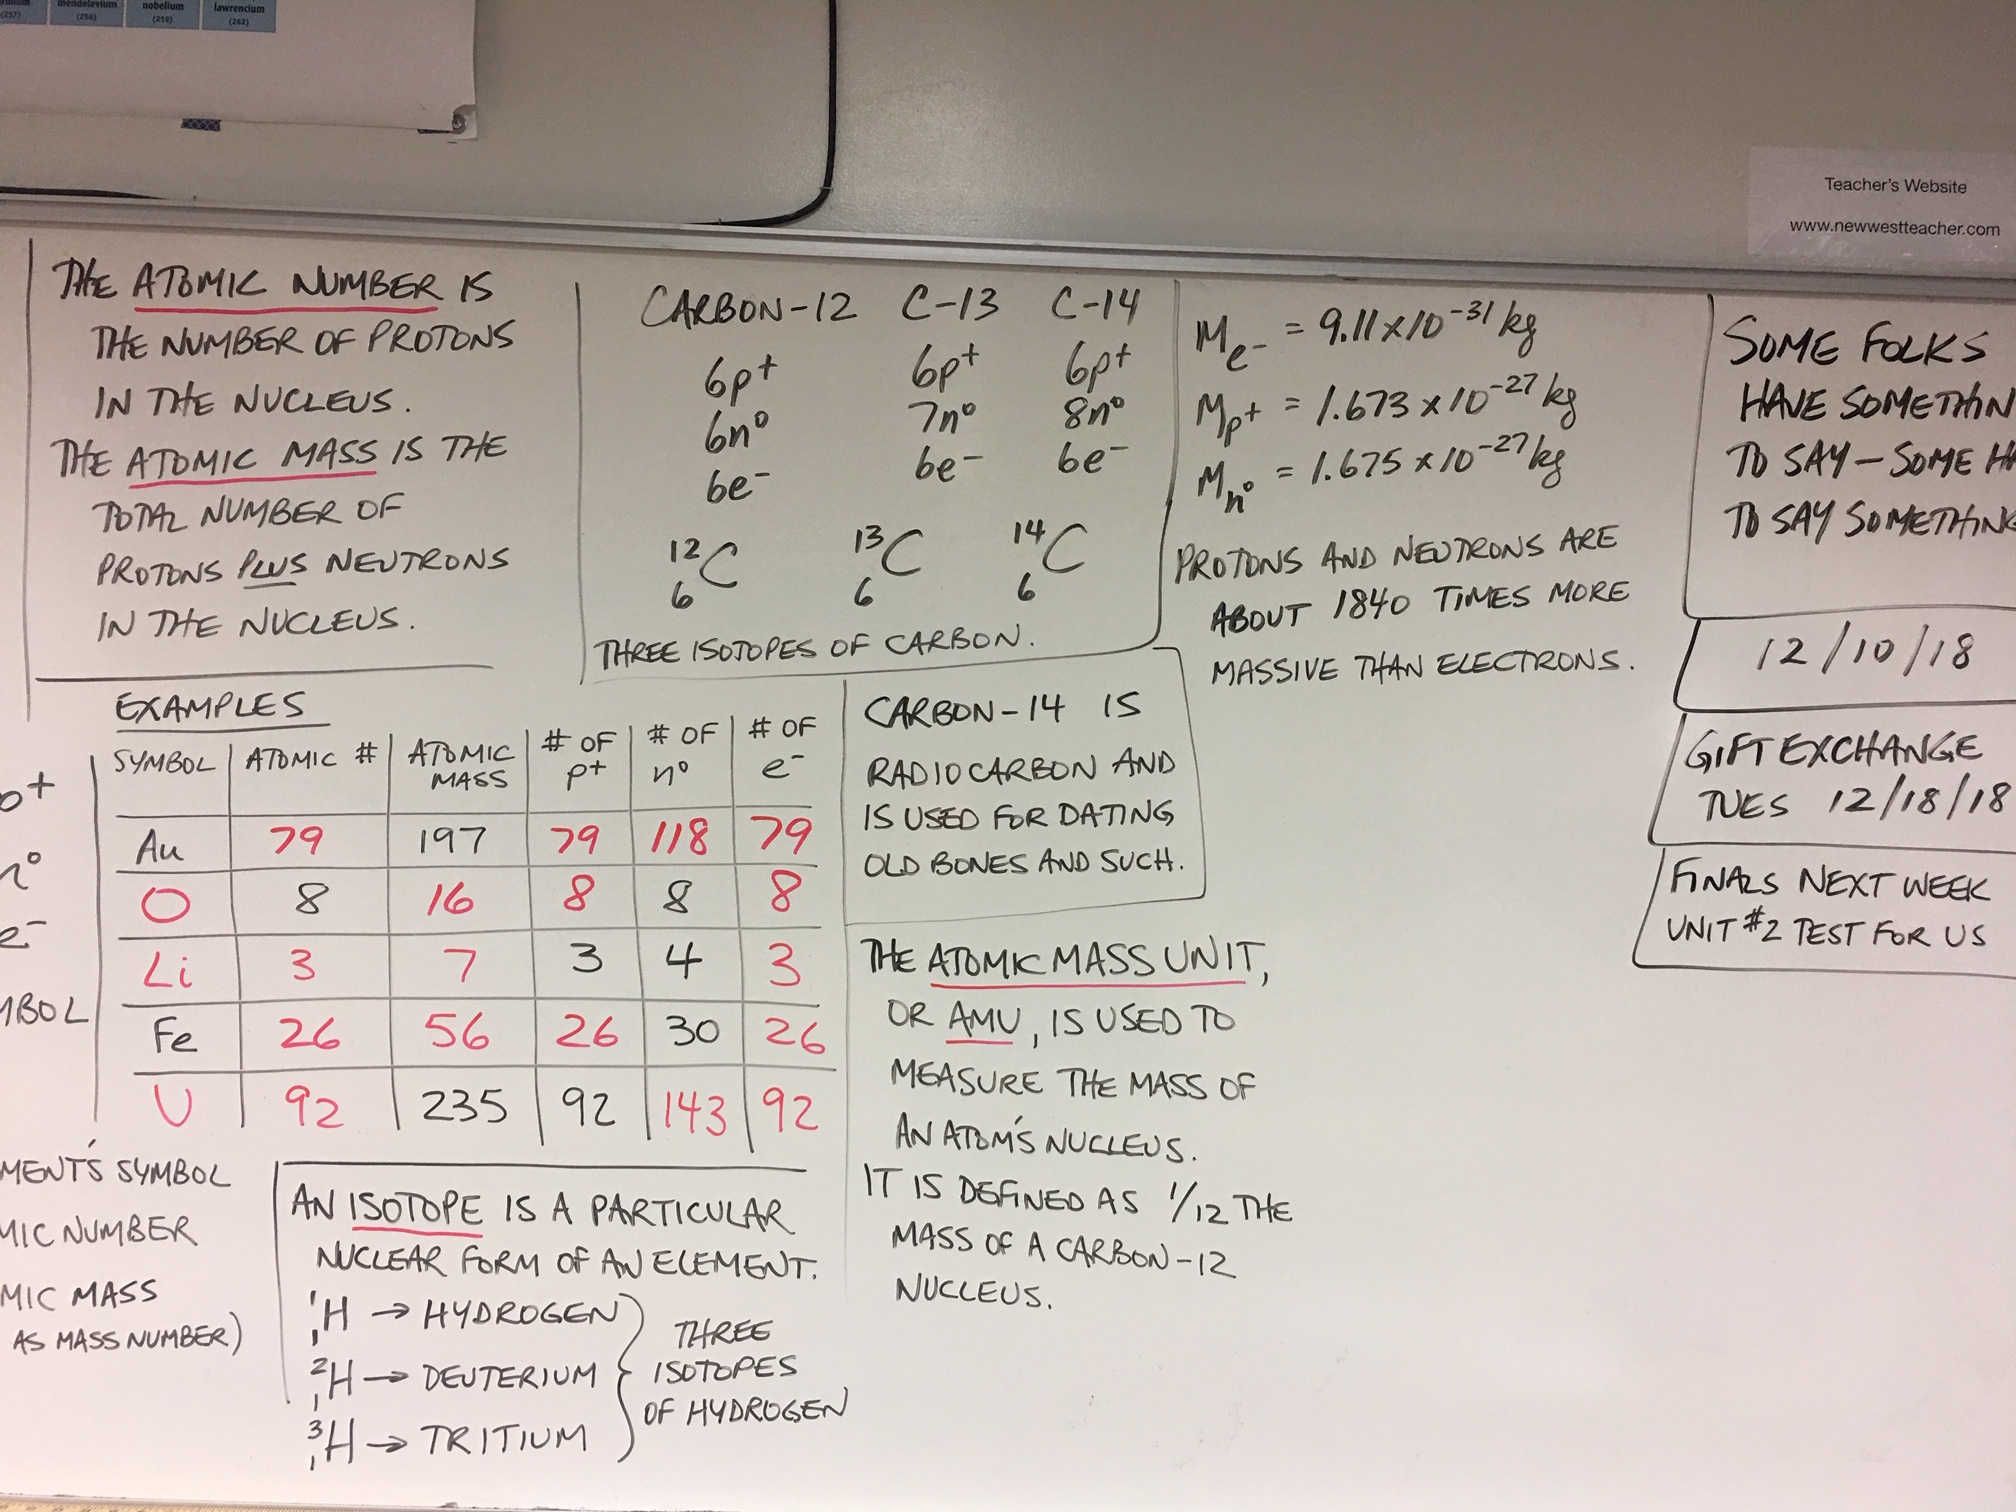 mendelevium
(258)
nobelium
(259)
lawrencium
(262)
(257)
Teacher's Website
www.newwestteacher.com
THE ATOMIC NUMBER IS
THE NUMBER OF PROTONS
IN THE NUCLEUS.
THE ATOMIC MASS IS THE
TOTAL NUMBER OF
PROTONS PLUS NEUTRONS
IN THE NUCLEUS.
CARBON-12 C-13 C-14
6p⁺ 6p⁺ 6p⁺
6n⁰ 7n⁰ 8n⁰
6e⁻ 6e⁻ 6e⁻
¹²₆C ¹³₆C ¹⁴₆C
THREE ISOTOPES OF CARBON.
Me⁻ = 9.11×10⁻³¹ kg
Mp⁺ = 1.673×10⁻²⁷ kg
Mn⁰ = 1.675×10⁻²⁷ kg
PROTONS AND NEUTRONS ARE
ABOUT 1840 TIMES MORE
MASSIVE THAN ELECTRONS.
SOME FOLKS
HAVE SOMETHIN
TO SAY – SOME HA
TO SAY SOMETHING
12/10/18
GIFT EXCHANGE
TUES 12/18/18
FINALS NEXT WEEK
UNIT #2 TEST FOR US
EXAMPLES
SYMBOL ATOMIC # ATOMIC MASS # OF p⁺ # OF n⁰ # OF e⁻
Au 79 197 79 118 79
O 8 16 8 8 8
Li 3 7 3 4 3
Fe 26 56 26 30 26
U 92 235 92 143 92
CARBON-14 IS
RADIOCARBON AND
IS USED FOR DATING
OLD BONES AND SUCH.
THE ATOMIC MASS UNIT,
OR AMU, IS USED TO
MEASURE THE MASS OF
AN ATOM'S NUCLEUS.
IT IS DEFINED AS 1/12 THE
MASS OF A CARBON-12
NUCLEUS.
p⁺
n⁰
e⁻
MBOL
MENT'S SYMBOL
MIC NUMBER
MIC MASS
AS MASS NUMBER)
AN ISOTOPE IS A PARTICULAR
NUCLEAR FORM OF AN ELEMENT.
¹₁H → HYDROGEN
²₁H → DEUTERIUM
³₁H → TRITIUM
THREE
ISOTOPES
OF HYDROGEN